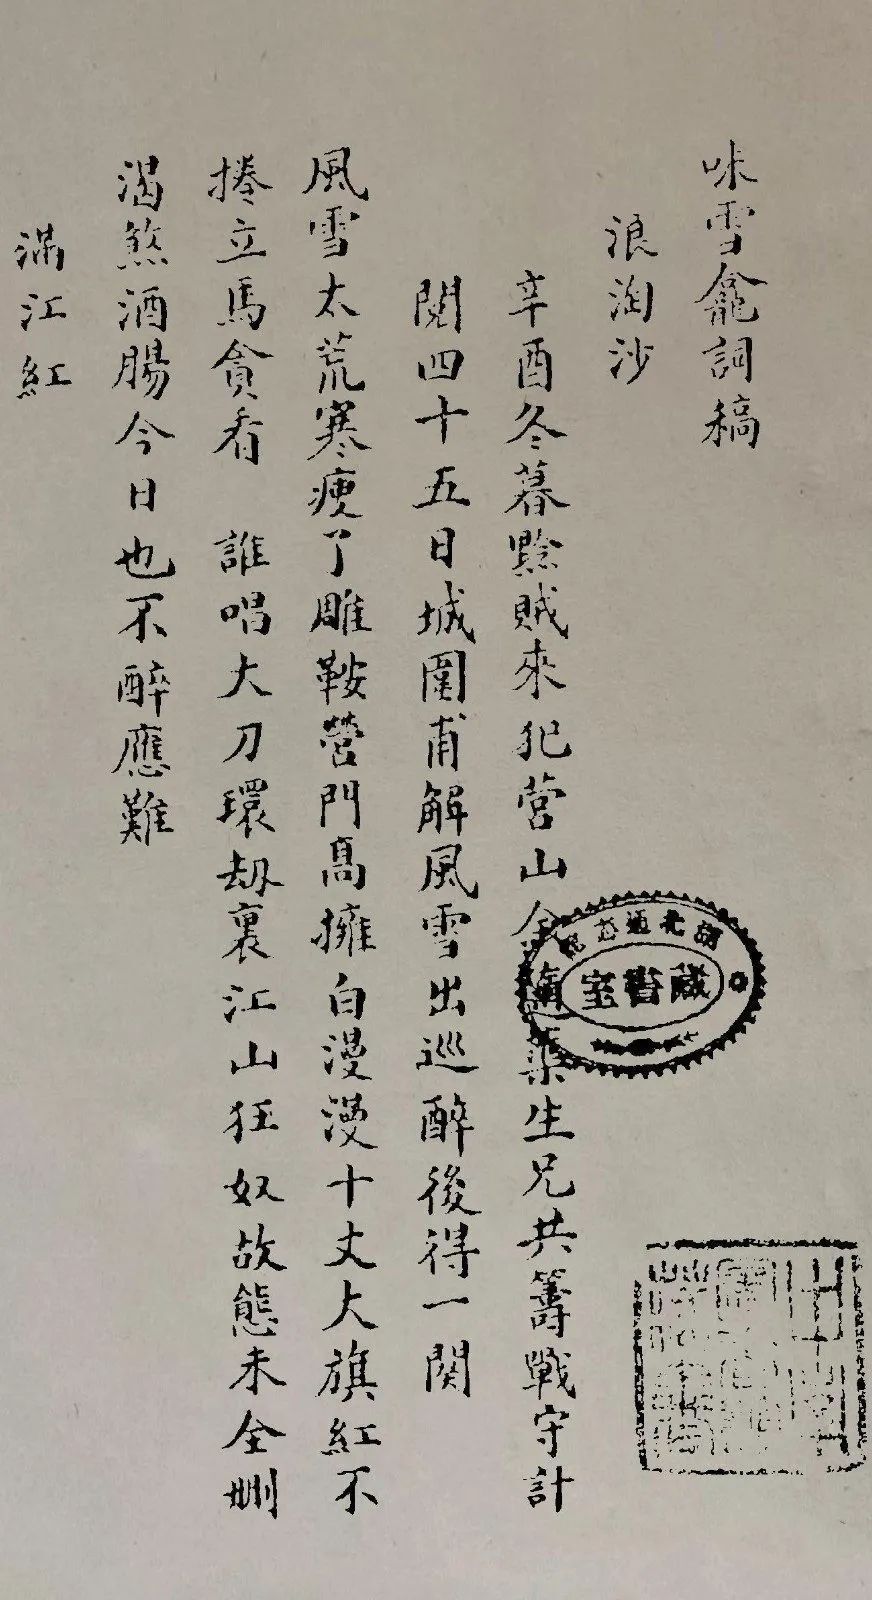 味雪龕詞稿
浪淘沙
辛酉冬暮黔賊來犯營山余 生兄共籌戰守計
閱四十五日城圍甫解風雪出巡醉後得一闋
風雪太荒寒瘦了雕鞍營門高擁白漫漫十丈大旗紅不
捲立馬貪看 誰唱大刀環劫裏江山狂奴故態未全刪
渴煞酒腸今日也不醉應難
滿江紅
藏書室